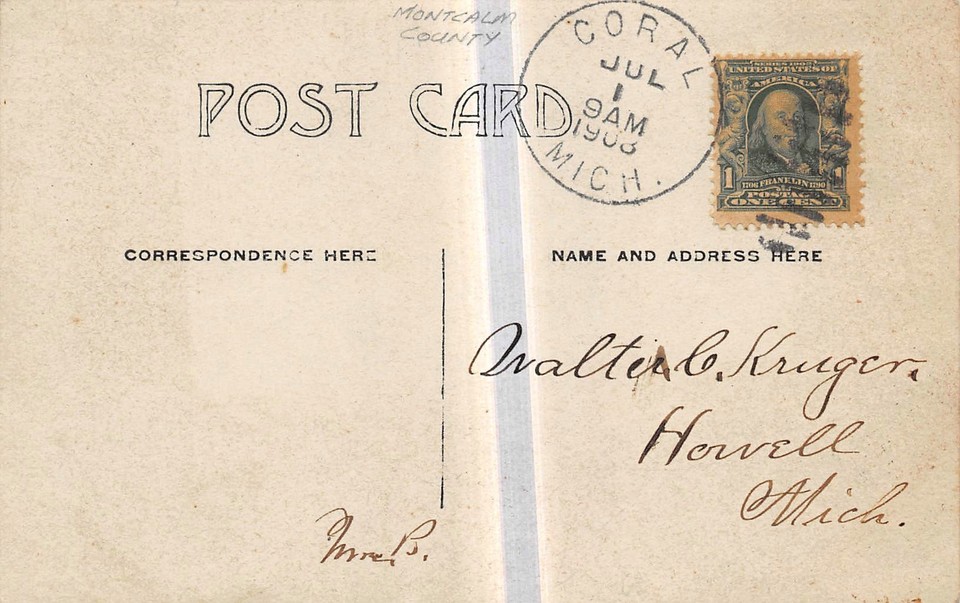 MONTCALM
COUNTY
POST CARD
CORAL
JUL
1
9AM
1908
MICH.
SERIES 1902
UNITED STATES OF
AMERICA
1 1
1706 FRANKLIN 1790
POSTAGE
ONE CENT
CORRESPONDENCE HERE
NAME AND ADDRESS HERE
Walter C. Kruger.
Howell
Mich.
B.